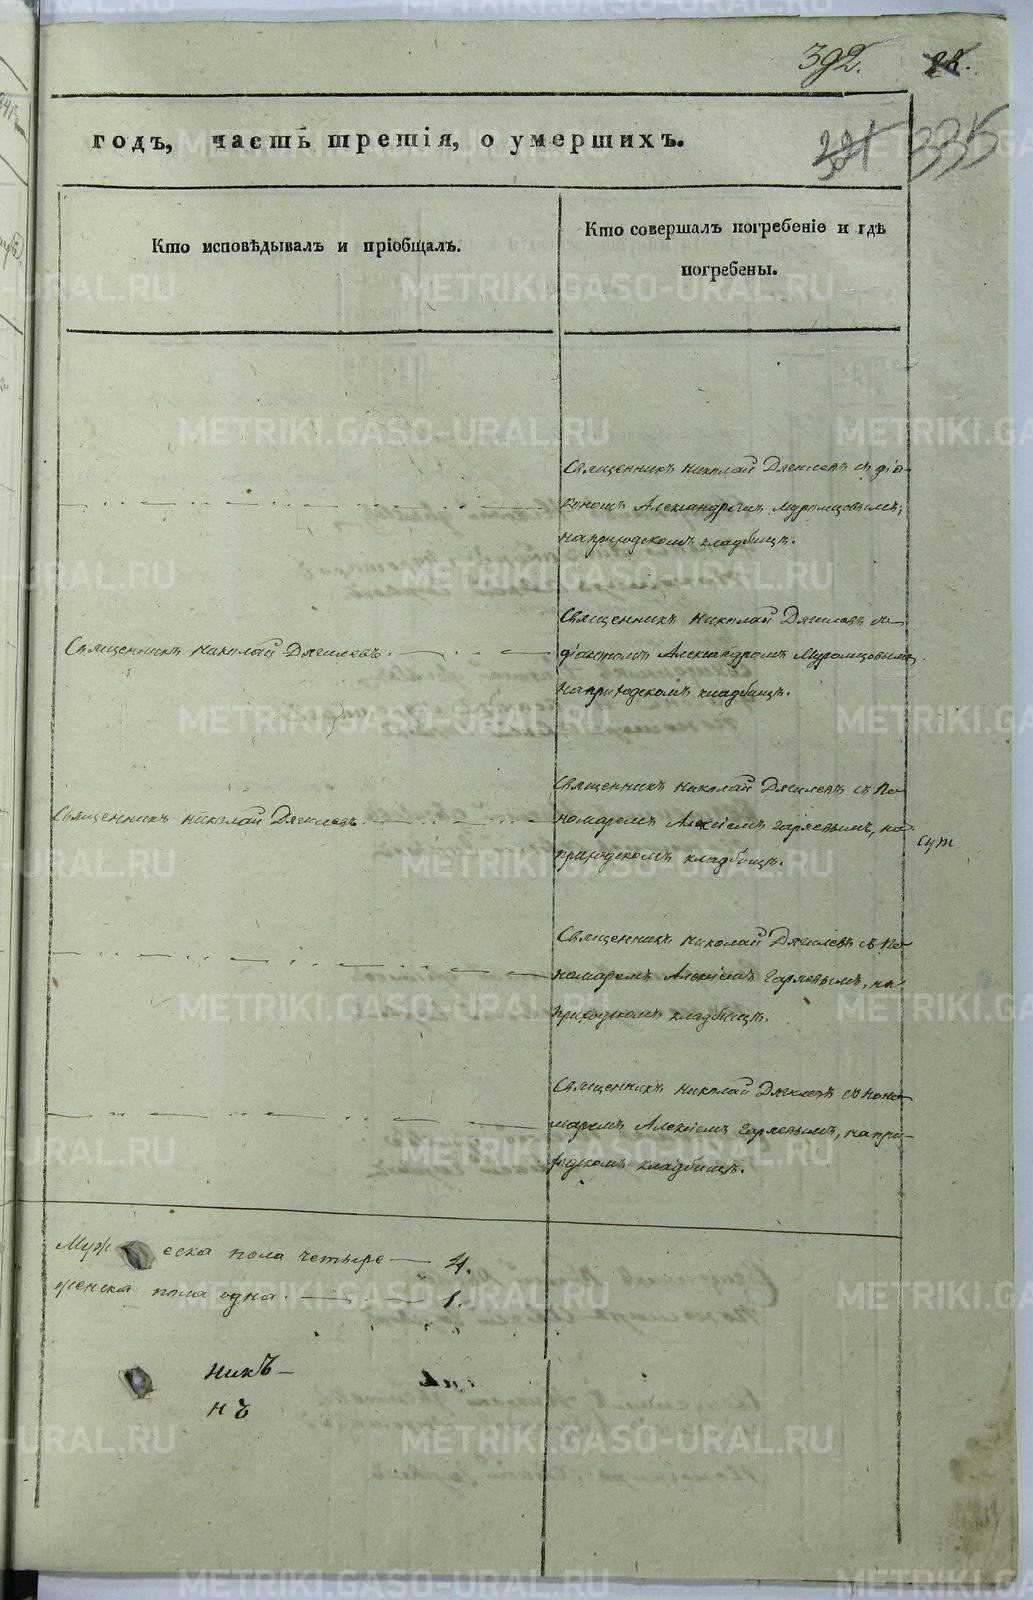 392.
335
годъ, часть третія, о умершихъ.
Кто исповѣдывалъ и пріобщалъ.
Кто совершалъ погребеніе и гдѣ
погребены.
Священникъ Николай Дягилевъ съ діа-
кономъ Александромъ Муромцовымъ,
на приходскомъ кладбищѣ.
Священникъ Николай Дягилевъ.
Священникъ Николай Дягилевъ съ
діакономъ Александромъ Муромцовымъ
на приходскомъ кладбищѣ.
Священникъ Николай Дягилевъ
Священникъ Николай Дягилевъ съ По-
номаремъ Алексіемъ Гаряевымъ, на
приходскомъ кладбищѣ.
Священникъ Николай Дягилевъ съ По-
номаремъ Алексіемъ Гаряевымъ, на
приходскомъ кладбищѣ.
Священникъ Николай Дягилевъ съ поно-
маремъ Алексіемъ Гаряевымъ, на при-
ходскомъ кладбищѣ.
Муж еска пола четыре — 4.
женска пола одна. — 1.
никъ —
нъ
METRIKI.GASO-URAL.RU